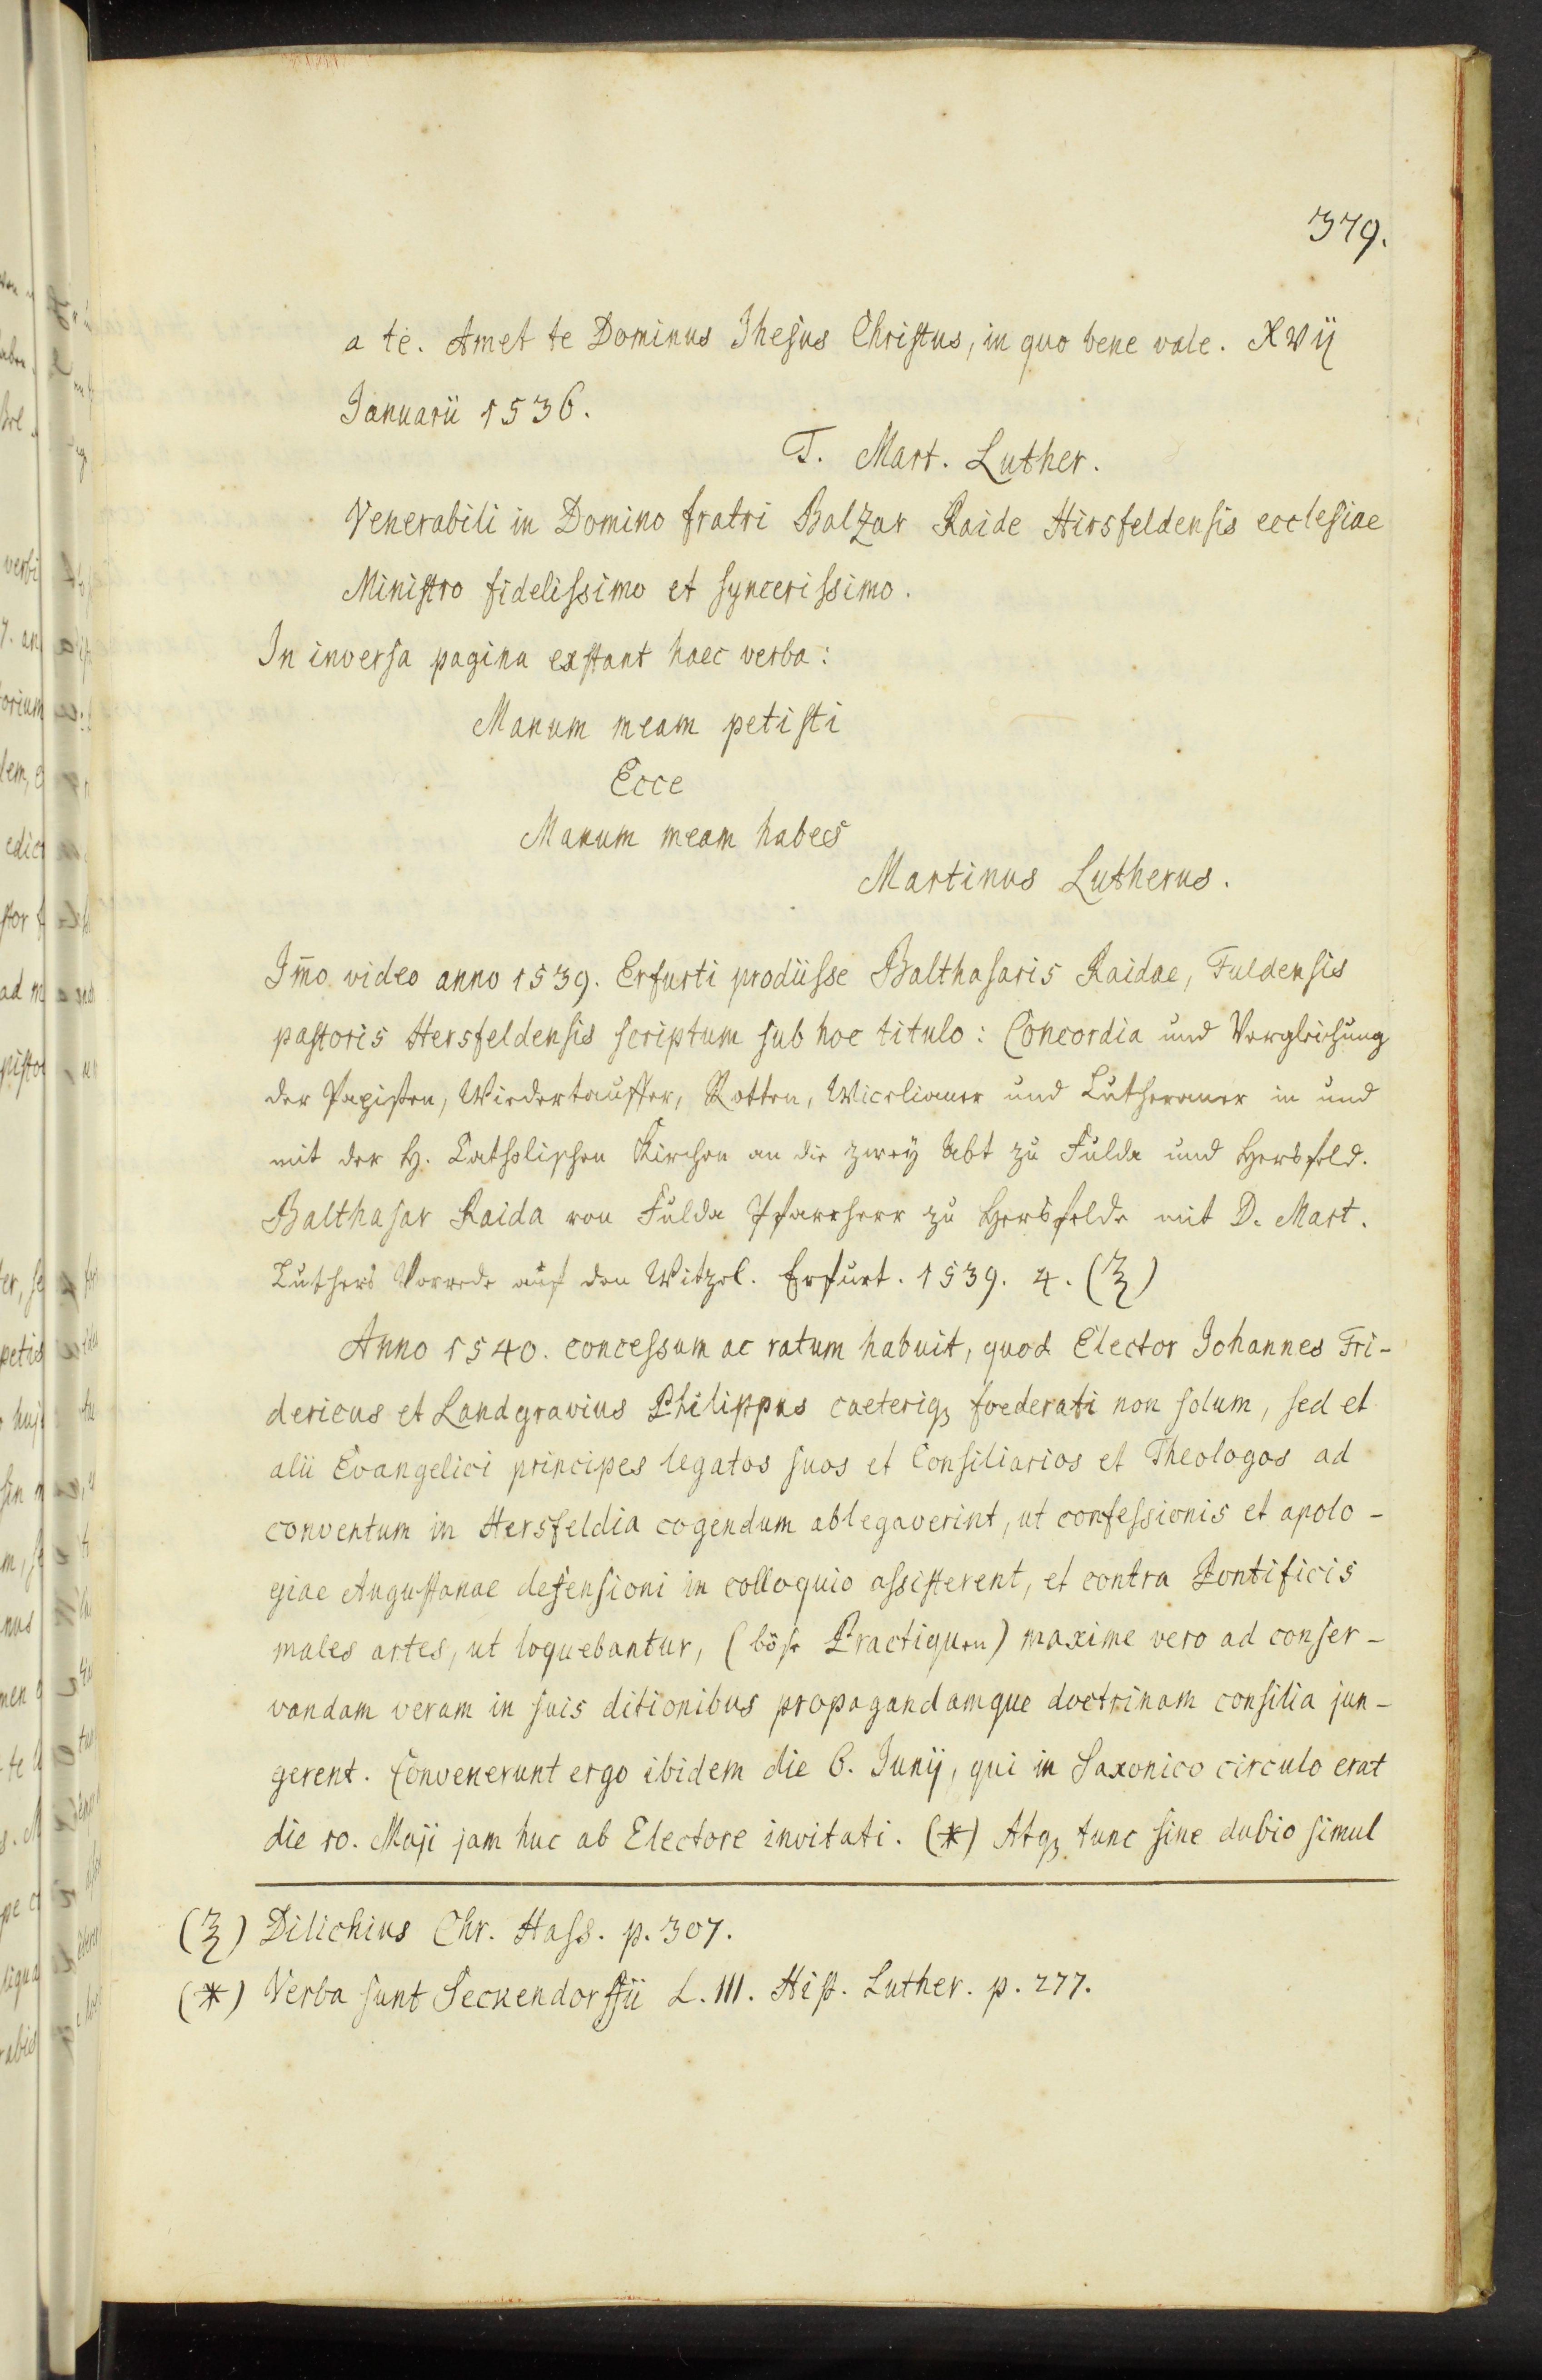 379.
a te. Amet te Dominus Jhesus Christus, in quo bene vale. XVij
Januarii 1536.
T. Mart. Luther.
Venerabili in Domino fratri Balzar Raide Hirsfeldensis ecclesiae
Ministro fidelissimo et syncerissimo.
In inversa pagina exstant haec verba:
Manum meam petisti
Ecce
Manum meam habes
Martinus Lutherus.
Im̄o video anno 1539. Erfurti prodiisse Balthasaris Raidae, Fuldensis
pastoris Hersfeldensis scriptum sub hoc titulo: Concordia und Vergleichung
der Papisten, Wiedertauffer, Rotten, Wicelianer und Lutheraner in und
mit der H. Catholischen Kirchen an die zwey Abt zu Fulda und Hersfeld.
Balthasar Raida von Fulda Pfarrherr zu Hersfelde mit D. Mart.
Luthers Vorrede auf den Witzel. Erfurt. 1539. 4. (ℨ)
Anno 1540. concessum ac ratum habuit, quod Elector Johannes Fri-
dericus et Landgravius Philippus caeteriqꝫ foederati non solum, sed et
alii Evangelici principes legatos suos et Consiliarios et Theologos ad
conventum in Hersfeldia cogendum ablegaverint, ut confessionis et apolo-
giae Augustanae defensioni in colloquio assisterent, et contra Pontificis
males artes, ut loquebantur, (böse Practiquen) maxime vero ad conser-
vandam veram in suis ditionibus propagandamque doctrinam consilia jun-
gerent. Convenerunt ergo ibidem die 6. Junij, qui in Saxonico circulo erat
die 10. Maji jam huc ab Electore invitati. (*) Atqꝫ tunc sine dubio simul
(ℨ) Dilichius Chr. Hass. p. 307.
(*) Verba sunt Seckendorffii L. III. Hist. Luther. p. 277.